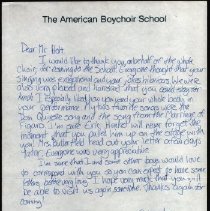 The American Boychoir School
Dear Mr. Holt,
I would like to thank you on behalf of the whole
choir for coming to the School. Everyone thought that your
singing was exceptional and your jokes hilarious. We were
also very pleased and honored that you could stay for
lunch. I especially liked how you used your whole body in
your performance. My two favorite songs were the
Don Quixote song and the song from the Marriage of
Figaro. I'm sure Eric Riedel will even forget the
moment that you called him up on the stage with
you. Mrs. Butterfield read out your letter on many days
later. Everyone was very appreciative.
I'm sure that I and some other boys would love
to correspond with you so you can expect to have some
letters before long. I hope very much that you will
be able to visit us again sometime. Thanks again for
coming!